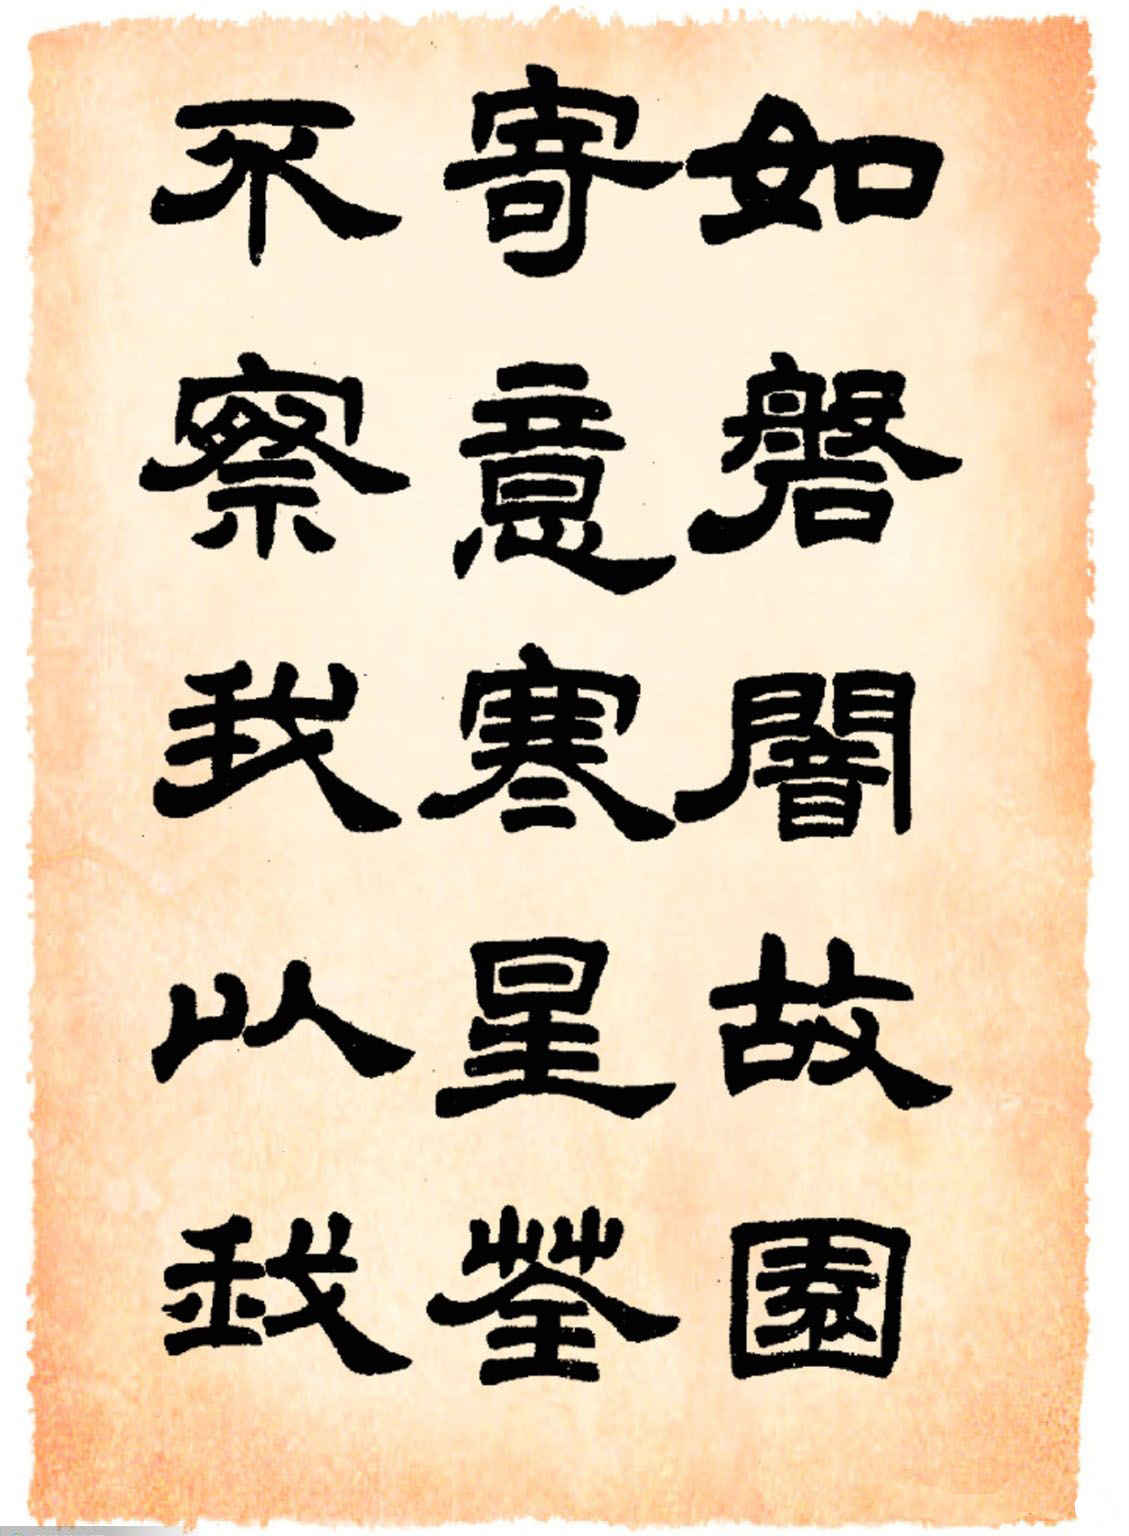 如磐闇故園
寄意寒星荃
不察我以我